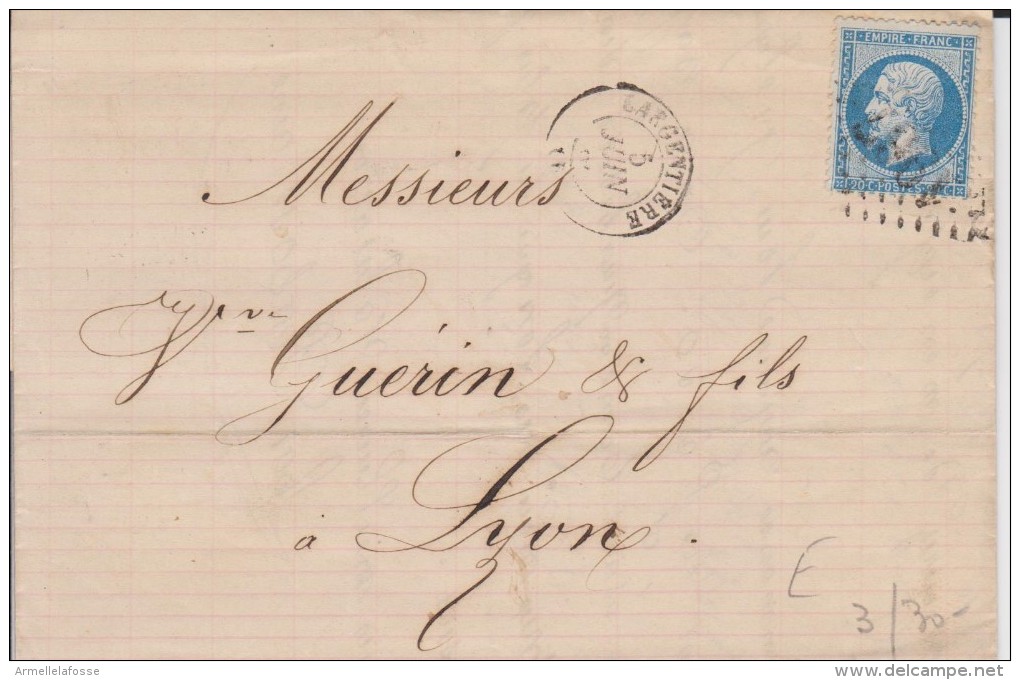 EMPIRE FRANC
20 C POSTES 20 C
LARGENTIERE
5
JUIN
Messieurs
Vve Guérin & fils
à Lyon.
E
3/30-
Armellelafosse
www.delcampe.net